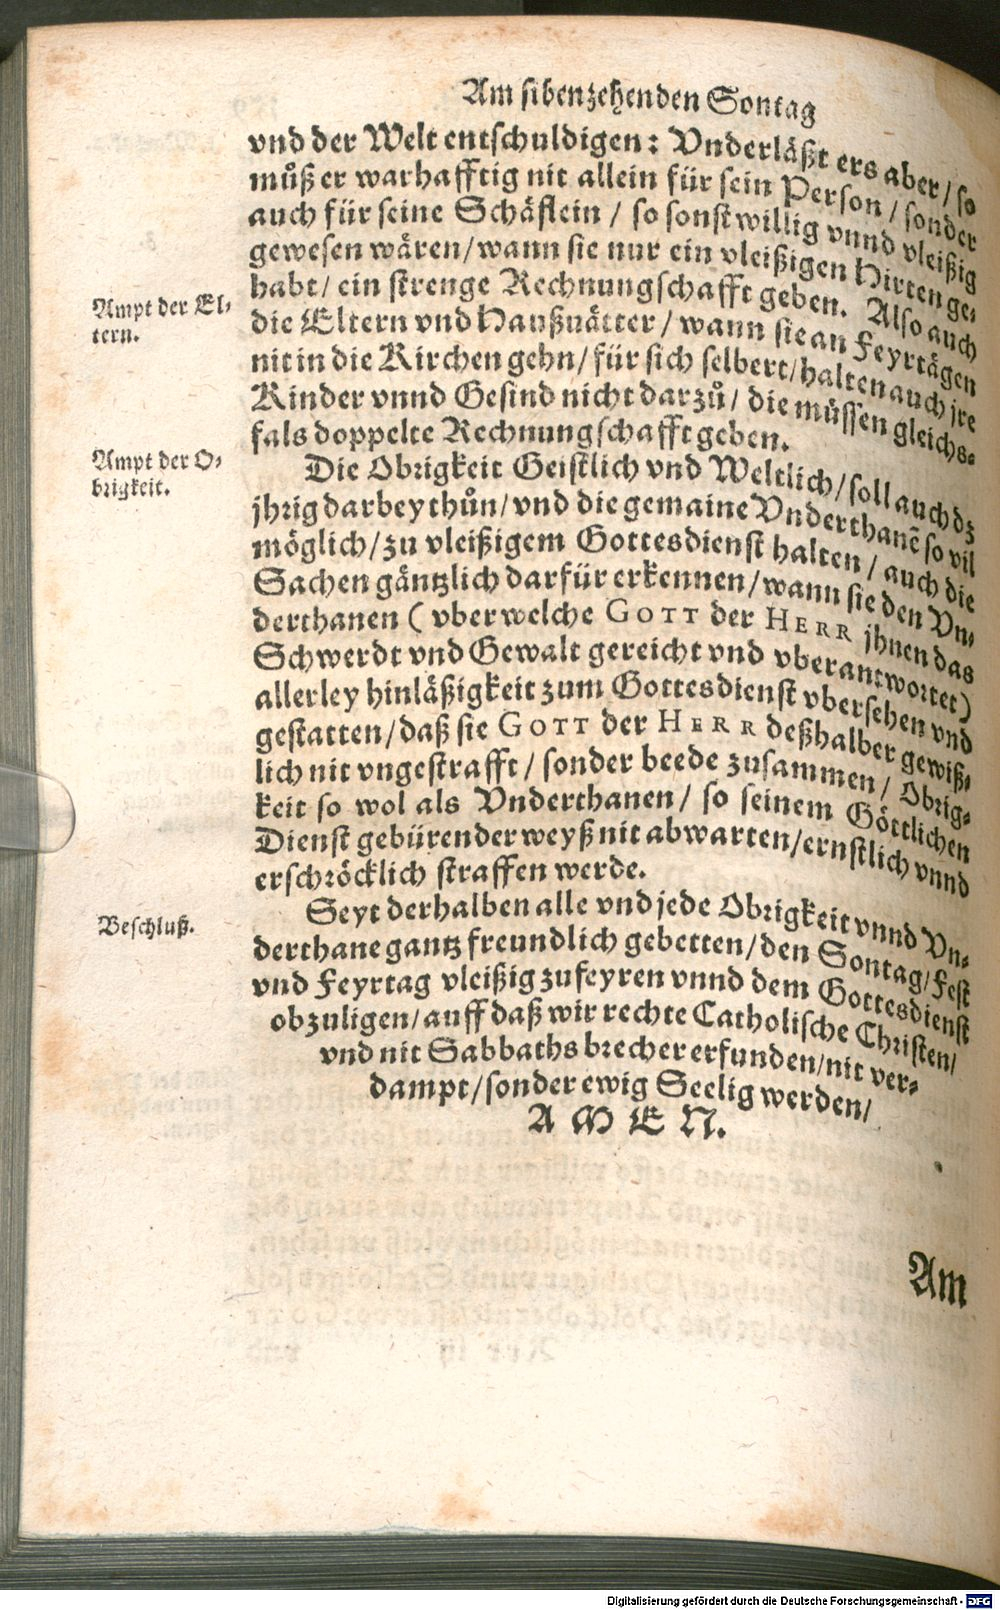 Am sibenzehenden Sontag
vnd der Welt entschuldigen: Vnderläßt ers aber/ so
můß er warhafftig nit allein für sein Person/ sonder
auch für seine Schäflein/ so sonst willig vnnd vleißig
gewesen wären/ wann sie nur ein vleißigen Hirten ge-
habt/ ein strenge Rechnungschafft geben. Also auch
die Eltern vnd Haußvätter/ wann sie an Feyrtägen
nit in die Kirchen gehn/ für sich selbert/ halten auch jre
Kinder vnnd Gesind nicht darzů/ die müssen gleichs-
fals doppelte Rechnungschafft geben.
Ampt der El-
tern.
Die Obrigkeit Geistlich vnd Weltlich/ soll auch dz
jhrig darbey thůn/ vnd die gemaine Vnderthanẽ so vil
möglich/ zu vleißigem Gottesdienst halten/ auch die
Sachen gäntzlich darfür erkennen/ wann sie den Vn-
derthanen (vber welche GOTT der HERR jhnen das
Schwerdt vnd Gewalt gereicht vnd vberantwortet)
allerley hinläßigkeit zum Gottesdienst vbersehen vnd
gestatten/ daß sie GOTT der HERR deßhalber gewiß-
lich nit vngestrafft/ sonder beede zusammen/ Obrig-
keit so wol als Vnderthanen/ so seinem Göttlichen
Dienst gebürender weyß nit abwarten/ ernstlich vnnd
erschröcklich straffen werde.
Ampt der O-
brigkeit.
Seyt derhalben alle vnd jede Obrigkeit vnnd Vn-
derthane gantz freundlich gebetten/ den Sontag/ Fest
vnd Feyrtag vleißig zufeyren vnnd dem Gottesdienst
obzuligen/ auff daß wir rechte Catholische Christen/
vnd nit Sabbathsbrecher erfunden/ nit ver-
dampt/ sonder ewig Seelig werden/
AMEN.
Beschluß.
Am
Digitalisierung gefördert durch die Deutsche Forschungsgemeinschaft - DFG